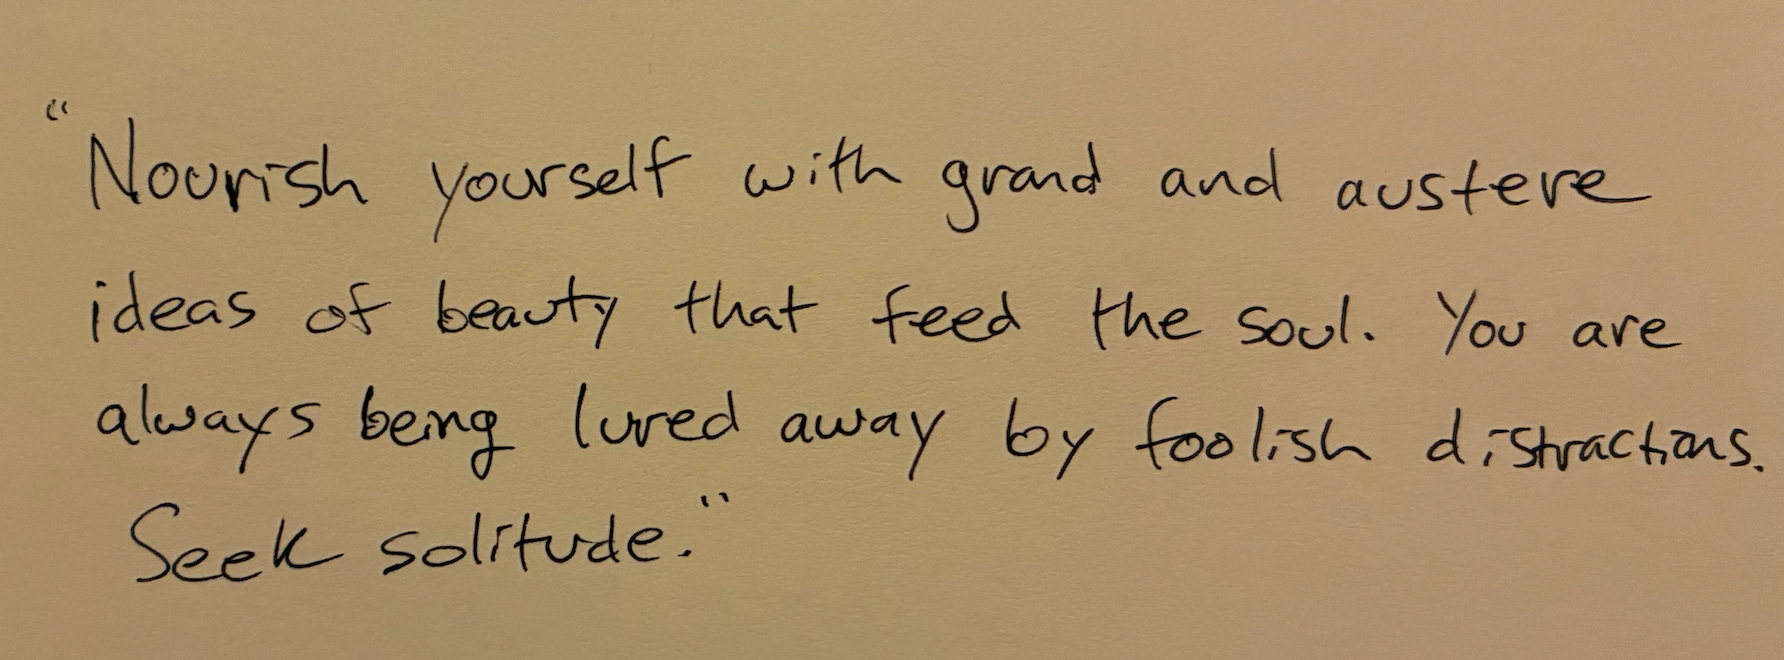 "Nourish yourself with grand and austere
ideas of beauty that feed the soul. You are
always being lured away by foolish distractions.
Seek solitude."